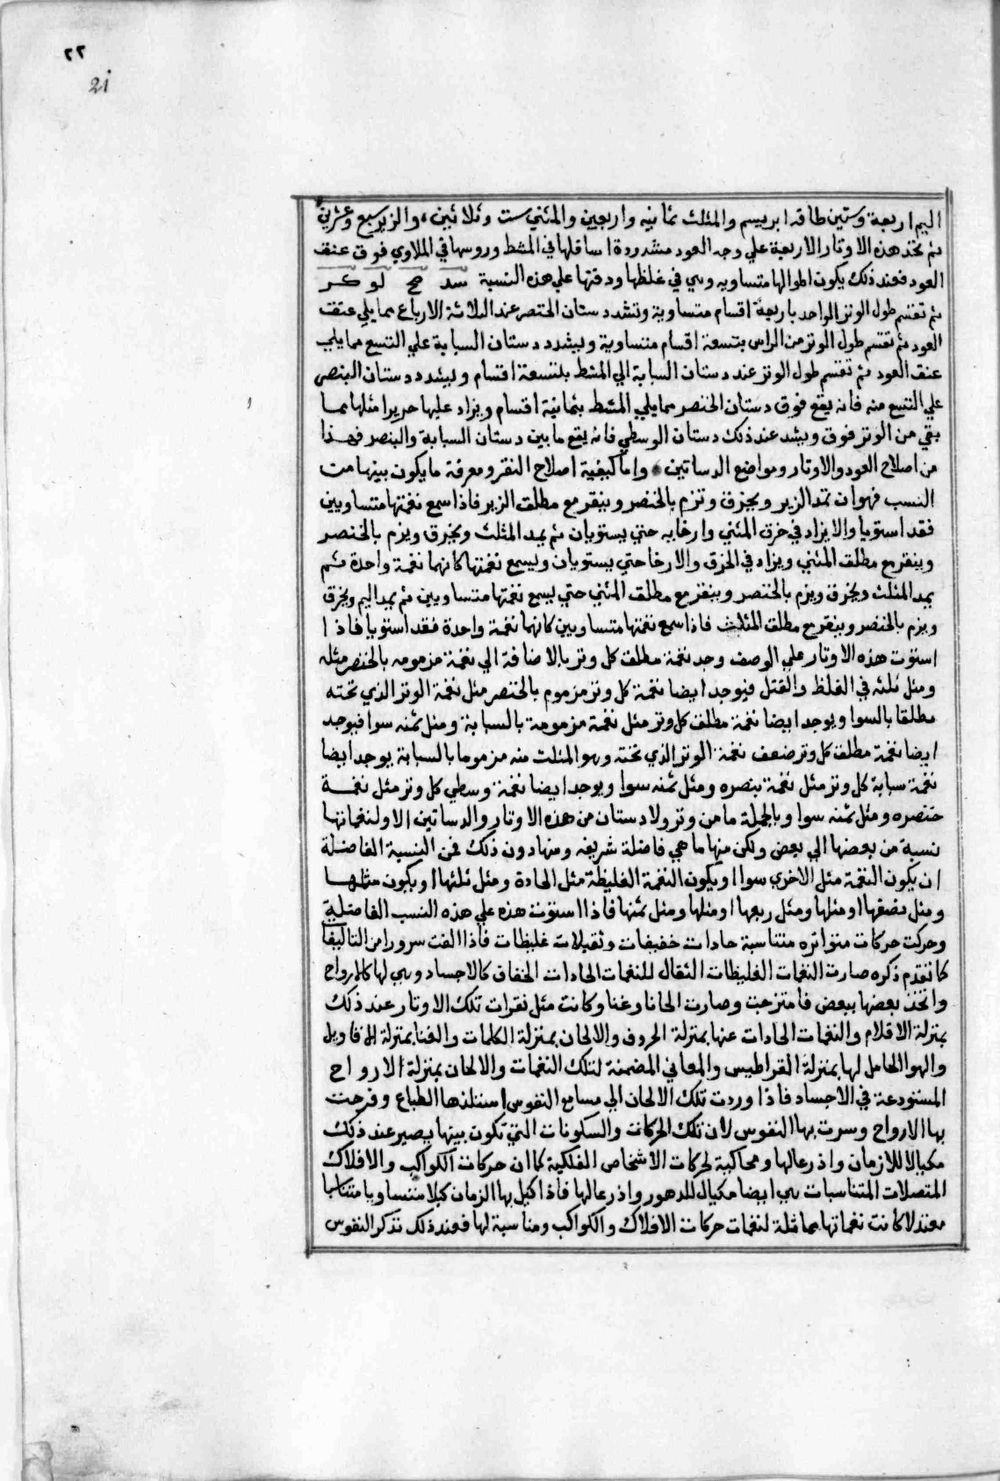 ٢٢
21
اليم اربعة وستين طاقه ابريسم والمثلث ثمانيه واربعين والمثني ست وثلاثين، والزير سبع وعشرين
ثم تخذ هذه الاوتار الاربعة علي وجه العود مشدودة اسافلها في المشط وروسها في الملاوي فوق عنف
العود فعند ذلك يكون الهوالها متساويه وهي في غلظها ودقتها علي هذه النسبة سد مح لو كز
ثم تقسم طول الوتر الواحد باربعة اقسام متساوية وتشدد ستان الخنصر عند الثلاثة الارباع مما يلي عنق
العود ثم تقسم طول الوتر من الراس بتسعة اقسام متساوية ويشدد دستان السبابة علي التسع مما يلي
عنف العود ثم تقسم طول الوتر عند دستان السبابة الي المشط بتسعة اقسام ويشدد دستان البنصر
علي التسع منه فانه يقع فوق دستان الخنصر مما يلي المشط بثمانية اقسام ويزاد عليها حريرا مثلها مما
بقي من الوتر فوق ويشد عند ذلك دستان الوسطي فانه يقع ما بين دستان السبابة والبنصر فهذا
من اصلاح العود والاوتار ومواضع الدساتين، واما كيفية اصلاح النقر ومعرفة ما يكون بينها من
النسب فهو ان تمد الزير ويحزق وتزم بالخنصر وينقر مع مطلق الزير فاذا سمع نغمتها متساويين
فقد استويا والا يزاد في خرق المثني وارخايه حتي يستويان ثم يمد المثلث ويحزق ويزم بالخنصر
وينقر مع مطلق المثني ويزاد في الخزق والارخا حتي يستويان ويسمع نغمتها كانهما نغمة واحدة ثم
يمد المثلث ويخزق ويزم بالخنصر وينقر مع مطلق المثني حتي يسمع نغمتها متساويين ثم يمد اليم ويخزق
ويزم بالخنصر وينقر مع مطلق المثلاث فاذا سمع نغمتها متساويين كانهما نغمة واحدة فقد استويا فاذا
استوت هذه الاوتار علي الوصف وجد نغمة مطلق كل وتر بالاضافة الي نغمة مزمومه بالخنصر مثله
ومثل ثلثه في الغلظ والقتل فيوجد ايضا نغمة كل وتر مزموم بالخنصر مثل نغمة الوتر الذي تحته
مطلقا بالسوا ويوجد ايضا نغمة مطلف كل وتر مثل نغمة مزمومة بالسبابة ومثل ثمنه سوا فيوجد
ايضا نغمة مطلق كل وتر ضعف نغمة الوتر الذي تحته وهو المثلث منه مزموما بالسبابة يوجد ايضا
نغمة سبابة كل وتر مثل نغمة بنصره ومثل ثمنه سوا ويوجد ايضا نغمة وسطي كل وتر مثل نغمة
خنصره ومثل ثمنه سوا وبالجملة ما من وتر ولا دستان من هذه الاوتار والدساتين الا ولنغماتها
نسبة من بعضها الي بعض ولكن منها ما هي فاضلة شريفه ومنها دون ذلك فمن النسبة الفاضلة
ان يكون النغمة مثل الاخري سوا او يكون النغمة الغليظة مثل الحادة ومثل ثلثها او يكون مثلها
ومثل نصفها او مثلها ومثل ربعها او مثلها ومثل ثمنها فاذا استوت هذه علي هذه النسب الفاضلة
وحركت حركات متواتره متناسبة حادات خفيفات وثقيلات غليظات فاذا الفت سرورا من التاليفا
كا تقدم ذكره صارت النغمات الغليظات الثقال للنغمات الحادات الخفاف كالاجساد وهي لها كالارواح
واتخذ بعضها ببعض فامتزجت وصارت الحانا وغنا وكانت مثل نقرات تلك الاوتار عند ذلك
بمنزلة الاقلام والنغمات الحادات عنها بمنزلة الحروف والالحان بمنزلة الكلمات والغنا بمنزلة الاقاويل
والهوا الحامل لها بمنزلة القراطيس والمعاني المضمنة لتلك النغمات والالحان بمنزلة الارواح
المستودعة في الاجساد فاذا وردت تلك الالحان الي مسامع النفوس استلذها الطباع وفرحت
بها الارواح وسرت بها النفوس لان تلك الحركات والسكونات التي تكون بينها يصير عند ذلك
مكيالا للازمان واذرعالها ومحاكية لحركات الاشخاص الفلكية كما ان حركات الكواكب والافلاك
المتصلات المتناسبات هي ايضا مكيال للدهور واذرعالها فاذا كيل بها الزمان كيلا متساويا متناسبا
معتدلا كانت نغماتها مماثلة لنغمات حركات الافلاك والكواكب ومناسبة لها فعند ذلك تذكر النفوس